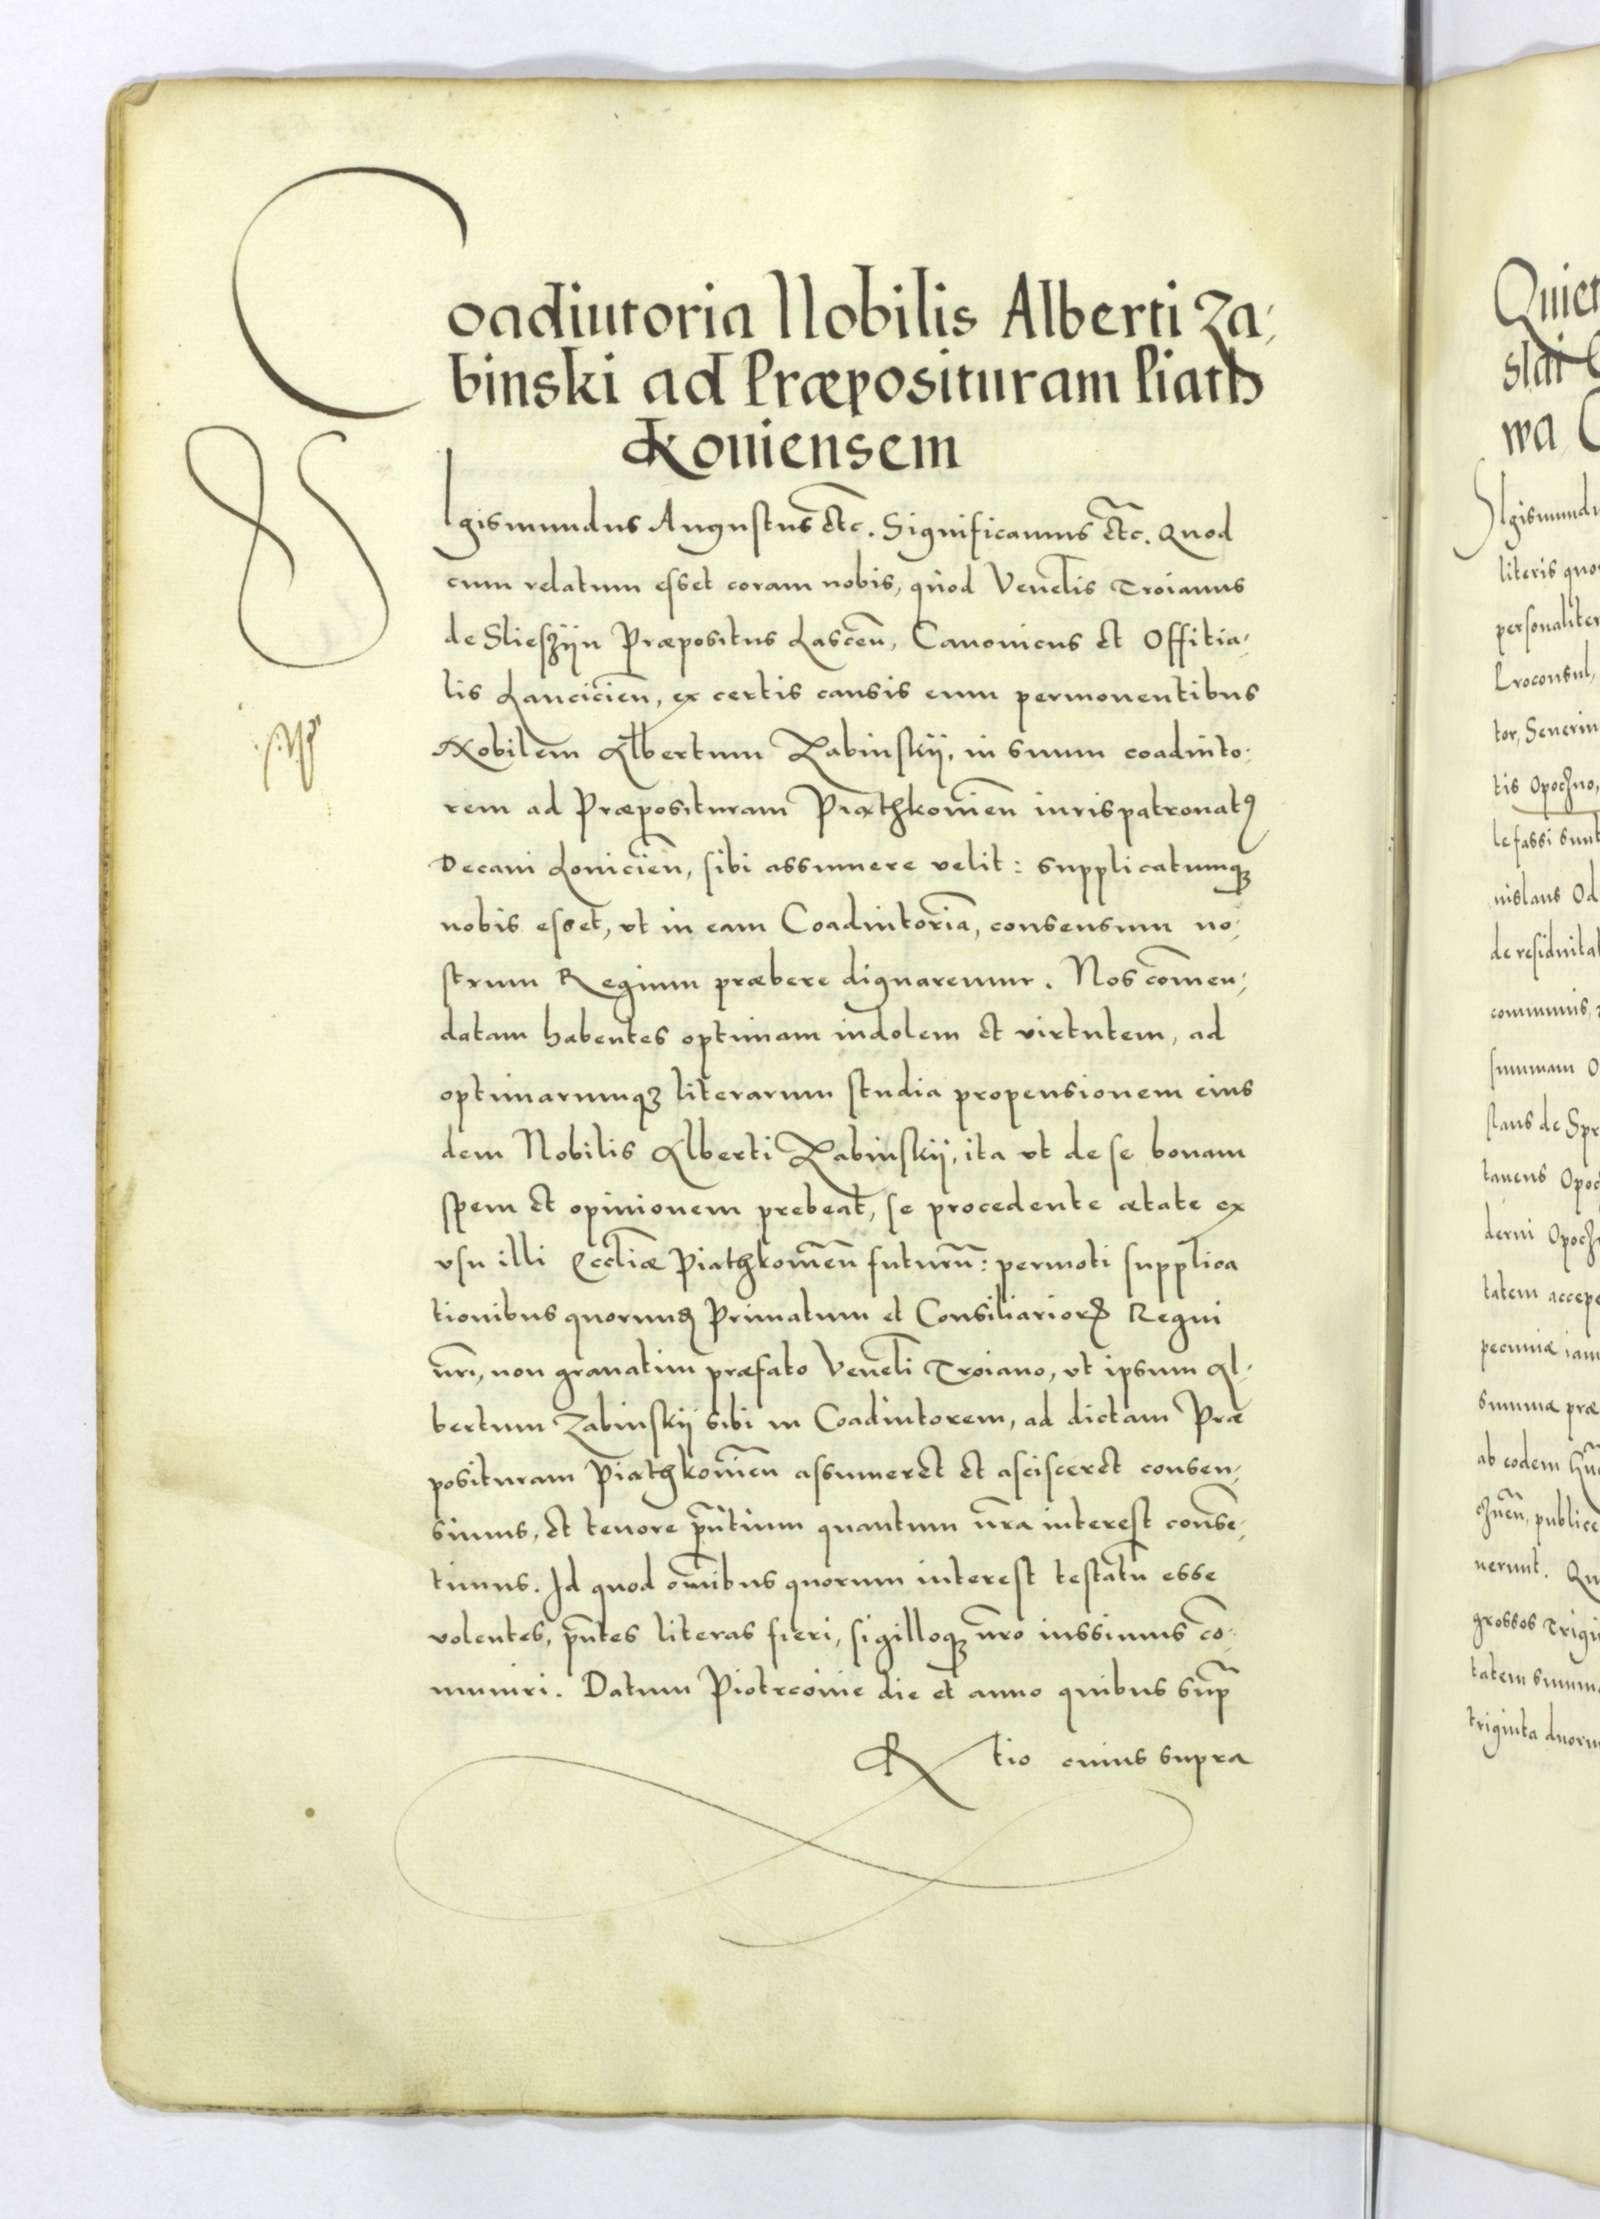 Coadiutoria Nobilis Alberti Za,
binski ad Præposituram Piath
kouiensem
SIgismundus Augustus etc. Significamus etc. Quod
cum relatum esset coram nobis, quod Venelis Troianus
de Slieszÿn Præpositus Lasceñ, Canonicus et Offitia,
lis Lancicieñ, ex certis causis eum permouentibus
Nobilem Albertum Zabinskÿ, in suum coadiuto,
rem ad Præposituram Piathkouieñ iurispatronatꝰ
Decani Louicieñ, sibi assumere velit: supplicatumqꝫ
nobis esset, vt in eam Coadiutoriã, consensum no,
strum Regium præbere dignaremur. Nos com̃en,
datam habentes optimam indolem et virtutem, ad
optimarumqꝫ literarum studia propensionem eius
dem Nobilis Alberti Zabinskÿ, ita vt de se bonam
spem et opinionem prebeat, se procedente ætate ex
vsu illi Eccliæ Piathkouieñ futurũ: permoti supplica
tionibus quorumd Primatum et Consiliarioꝝ Regni
nr̃i, non grauatim præfato Veneli Troiano, vt ipsum Al,
bertum Zabinskÿ sibi in Coadiutorem, ad dictam Præ
posituram Piathkouieñ assumeret et ascisceret consen,
simus, et tenore pñtium quantum nr̃a interest conse,
timus. Id quod om̃ibus quorum interest testatũ esse
volentes, pñtes literas fieri, sigilloqꝫ nr̃o iussimus cõ,
muniri. Datum Piotrcouie die et anno quibus sup̃
Rtio cuius supra
Quiet
slai
wa
SIgismundu
literis quo
personaliter
Proconsul,
tor, Seuerin
tis Opoczno,
le fassi sunt
nislaus Od
de residuitat
communis,
summam O
slaus de Spr
taneus Opoc
derni Opocz
tatem accepe
pecuniæ iam
summa præ
ab eodem
publice
uerunt. Qu
grossos Trigi
tatem summa
triginta duorum